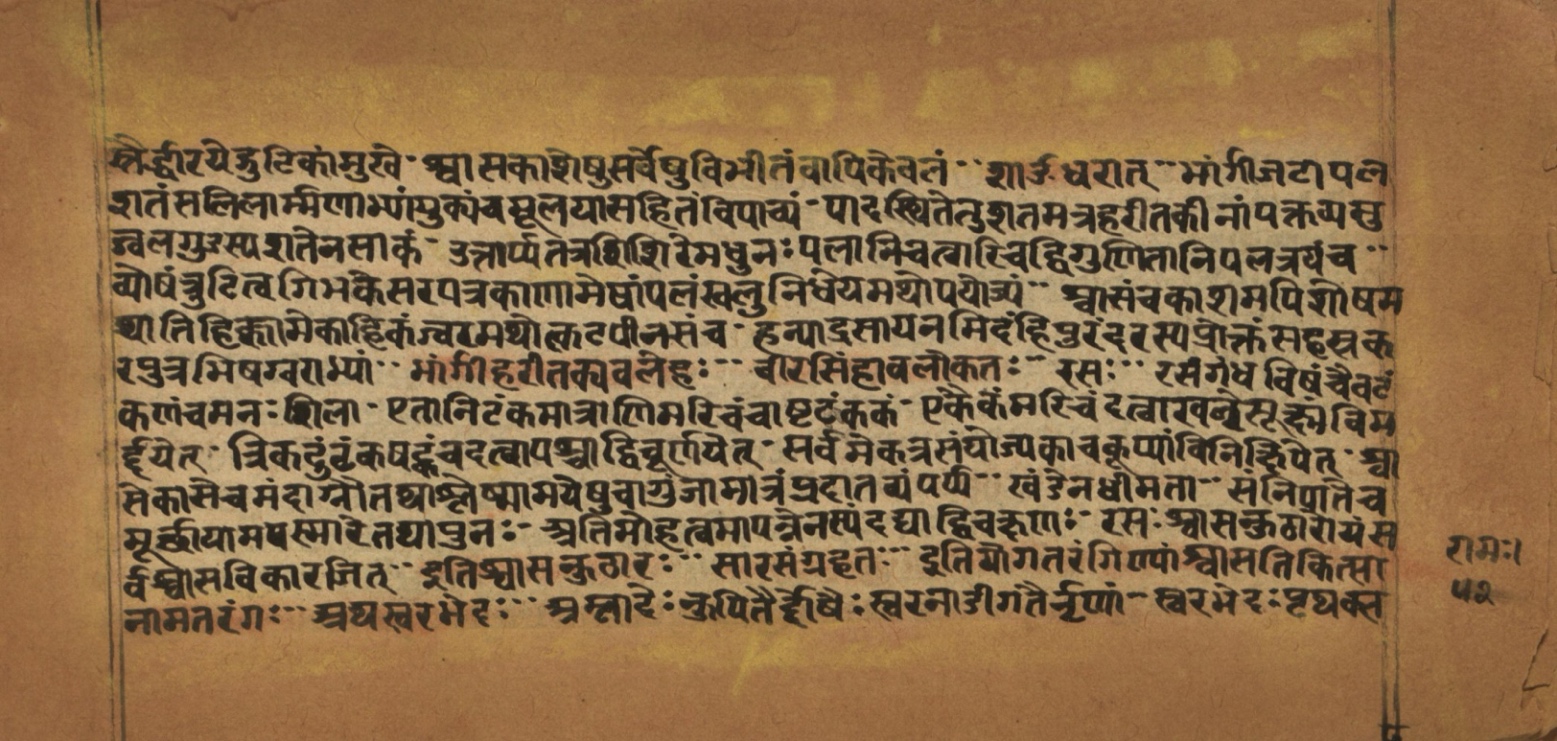 स्त्रैर्द्धारयेद्गुटिकांमुखे॰ श्वासकाशेषुसर्वेषुविभीतंवापिकेवलं॰॰ शार्ङधरात्॰॰ भांर्गीजटापल
शतंसलिलार्म्मणाभ्यांयुक्यंचमूलयासहितंविपाच्यं॰ पादस्थितेतुशतमत्रहरीतकीनांपक्तव्यमु
ज्वलगुडस्यशतेनसाकं॰ उत्तार्प्यतत्रशिशिरेमधुनः पलानिचत्वारिचद्विगुणितानिपलत्रयंच॰॰
व्योषंत्रुटित्वगिभकेसरपत्रकाणामेषांपलंखलुनिधेयमथोपयोज्यं॰॰ श्वासंचकाशमपिशोषम
थातिहिक्कामेकाह्निकंज्वरमथोत्कटपीनसंच॰ हन्याद्रसायनमिदंहिपुरंदरस्यप्रोक्तंसहस्रक
रपुत्रभिषग्वराभ्यां॰॰ भांर्गीहरीतक्यवलेहः॰॰ वीरसिंहावलोकतः॰॰ रसः॰॰ रसंगंधविषंचैवटं
कणंचमनः शिला॰ एतानिटंकमात्राणिमरिचंचाष्टटंककं॰ एकैकंमरिचंदत्वाखल्वेसूक्ष्मंविम
र्द्दयेत्॰ त्रिकटुंटंकषट्कंचदत्वापश्चाद्विचूर्णयेत्॰ सर्वमेकत्रसंयोज्यकाचकूप्यांविनिक्षिपेत्॰ श्वा
सेकासेचमंदाग्नौतथाश्लेष्मामयेषुचागुंजामात्रंप्रदातव्यंपर्प्प॰॰ खंडेनधीमता॰॰ संनिपातेच
मूर्च्छायामपस्मारेतथापुनः॰ अतिमोहत्वमापन्नेनस्यंदद्याद्विचक्षणः॰ रसः श्वासकुठारोयंस
र्वश्वासविकारजित्॰॰ इतिश्वासकुठारः॰॰ सारसंग्रहृत॰॰ इतियोगतरंगिण्यांश्वासतिकित्सा
नामतरंगः॰॰ अथस्वरभेदः॰॰ अम्लादैः कुपितैर्द्दोषैः स्वरनाडीगतैर्नृणां॰ स्वरभेदः पृथक्त
रामः।
५२